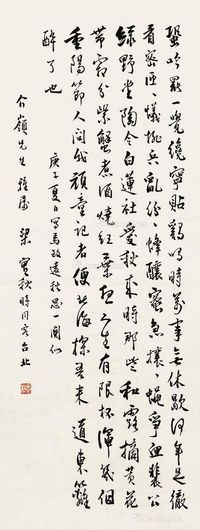 蛩吟罷一覺纔寧貼鷄鳴時萬事無休歇何年是徹
看密匝〻蟻排兵亂紛〻蜂釀蜜急攘〻蠅爭血裴公
綠野堂陶令白蓮社愛秋來時那些和露摘黃花
帶霜分紫蟹煮酒燒紅葉想人生有限杯渾幾個
重陽節人問我頑童記者便北海探吾來道東籬
醉了也
庚子夏日寫馬致遠秋思一闋似
介嶺先生雅屬 梁實秋時同客台北